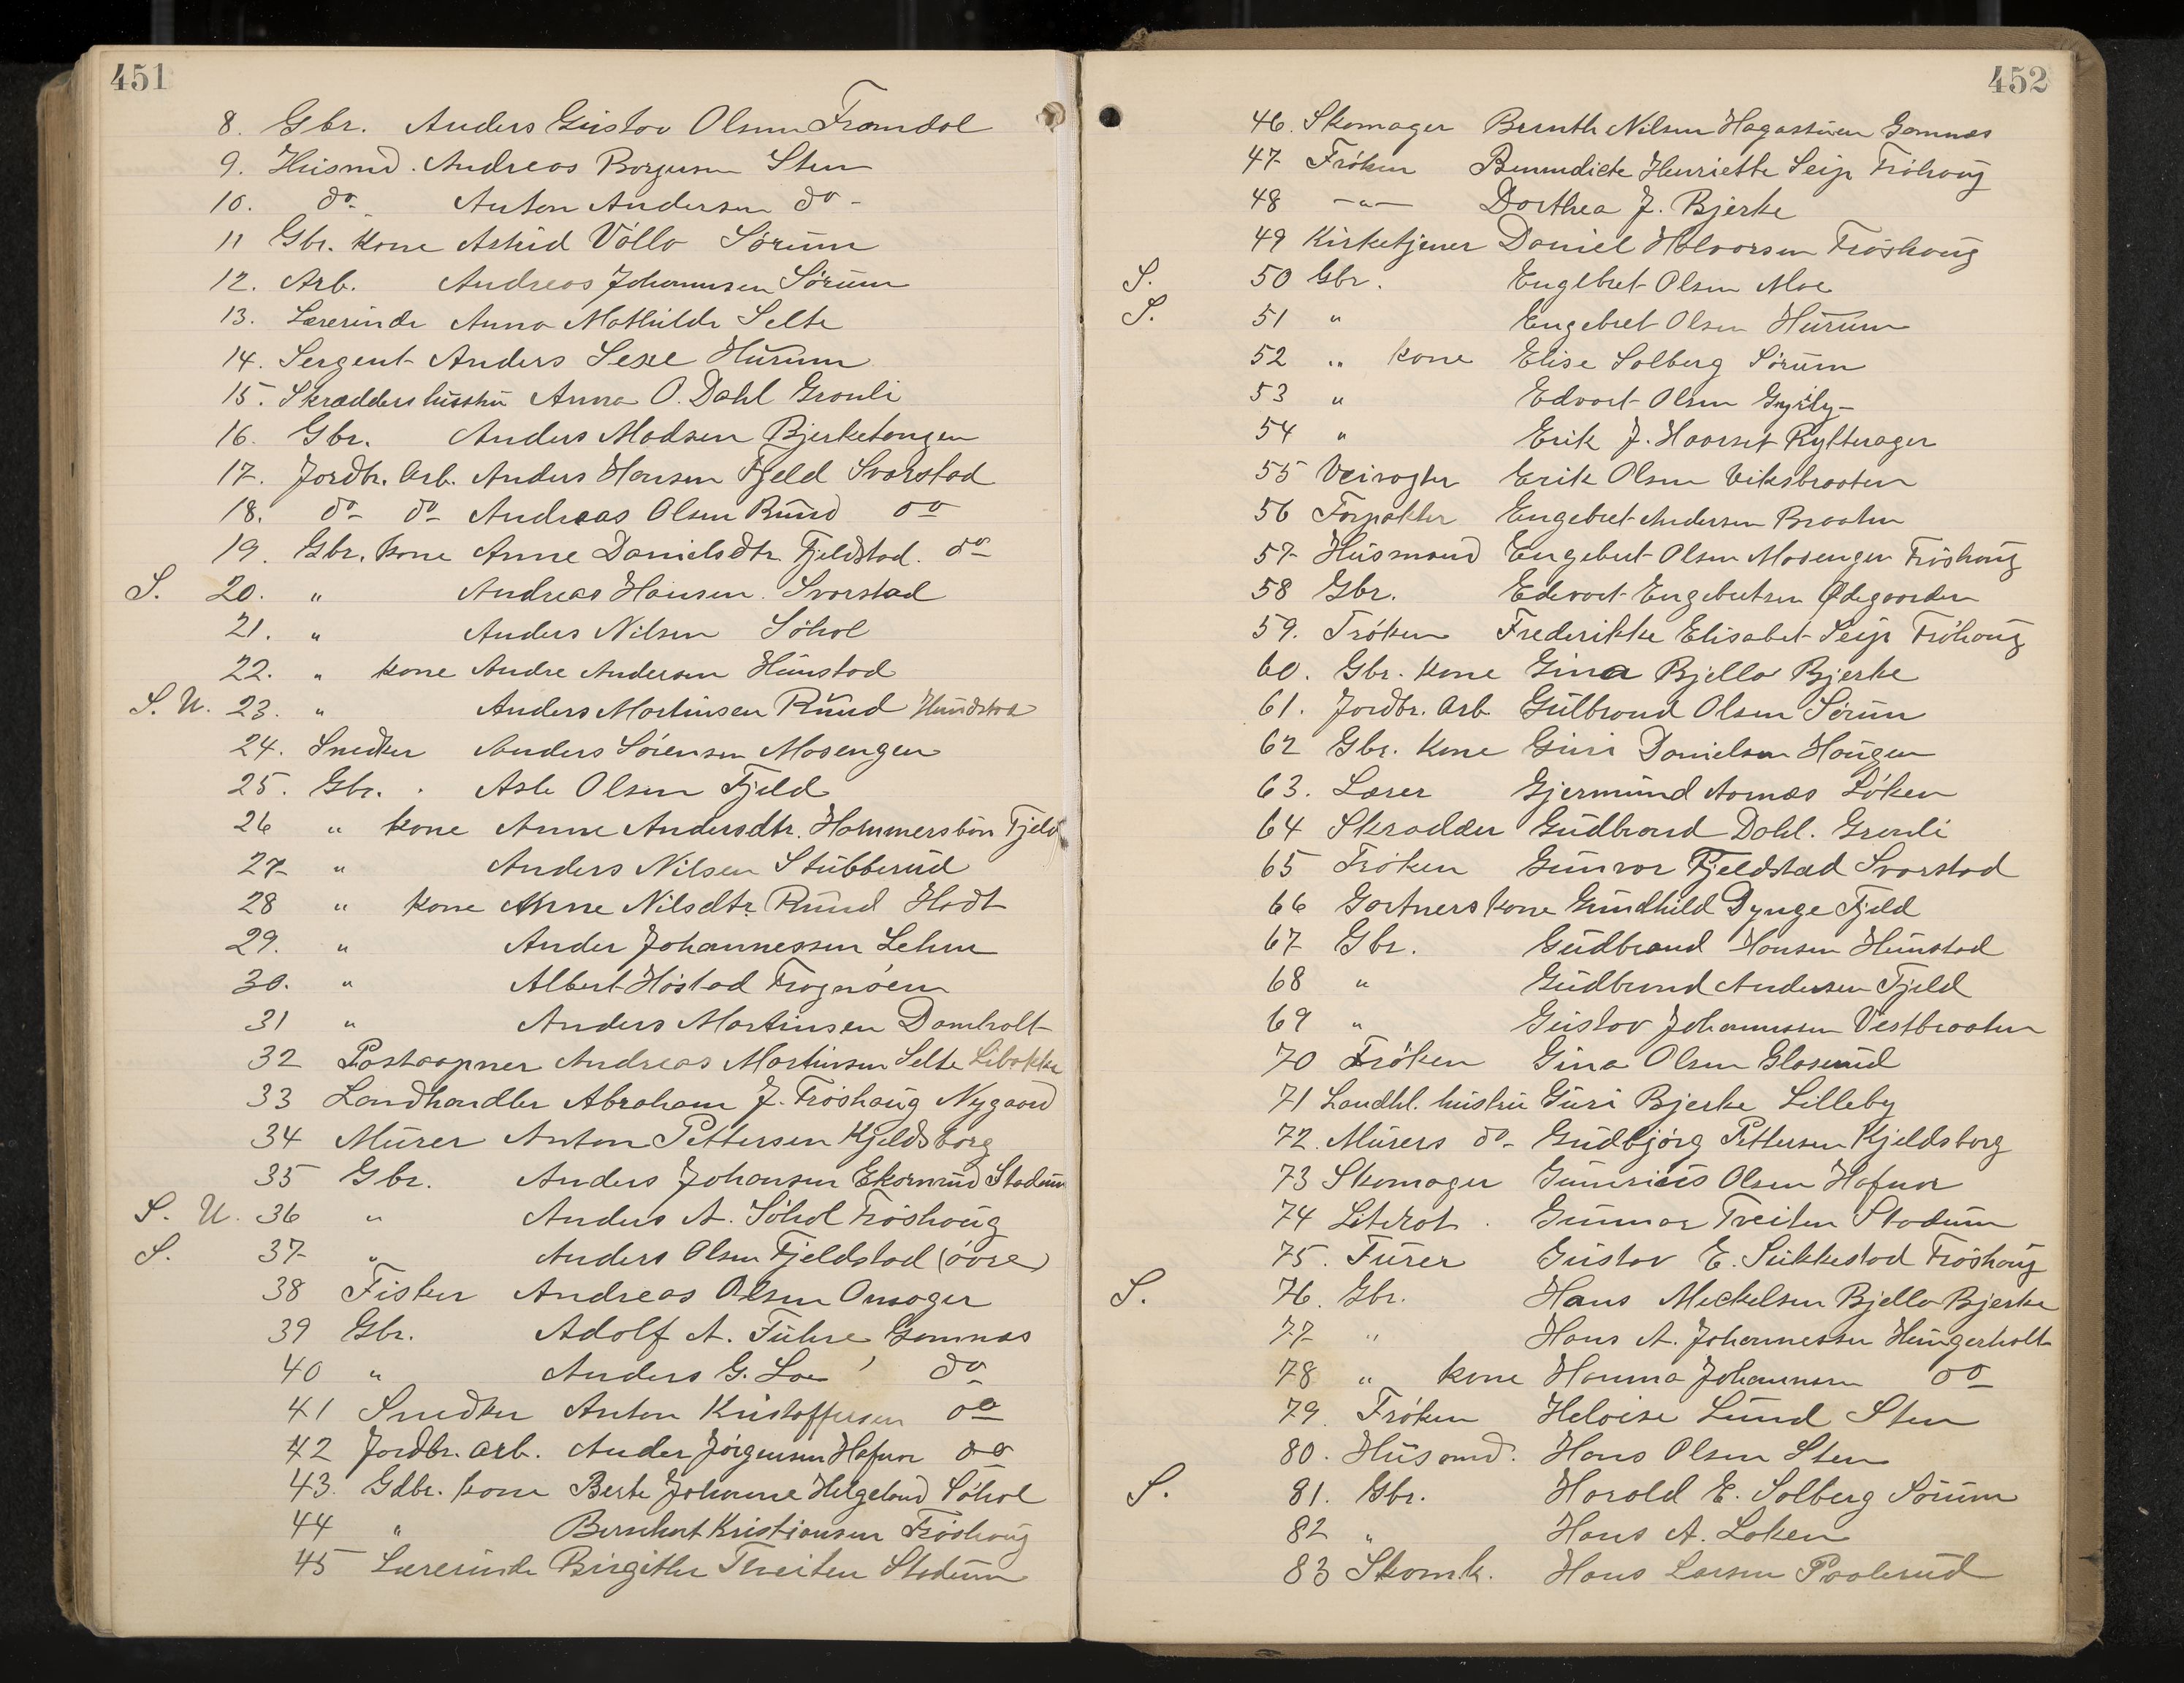 451
8. Gbr. Anders Gustav Olsen Framdal
9. Husmd. Andreas Borgersen Sten
10. do- Anton Andersen do-
11 Gbr. kone Astrid Vøllo Sørum
12. Arb. Andreas Johannesen Sørum
13. Lærerinde Anna Mathilde Selte
14. Sergent Anders Sexe Hurum
15. Skrædders hustru Anna O. Dahl Grønli
16. Gbr. Anders Madsen Bjerketangen
17. Jordbr. Arb. Anders Hansen Fjeld Svarstad
18. do- do- Andreas Olsen Ruud do
19. Gbr. kone Anne Danielsdtr. Fjeldstad. do
S. 20. " Andreas Hansen. Svarstad
21. " Anders Nilsen Søhol
22. " kone Andre Andersen Hunstad
S. U. 23. " Anders Martinsen Ruud Hundstad
24. Snedker Anders Sørensen Mosengen
25. Gbr. Asle Olsen Fjeld
26 " kone Anne Andersdtr. Hammersbøn Fjeld
27 " Anders Nilsen Stubberud
28 " kone Anne Nilsdtr. Ruud Hødt
29. " Ander Johannessen Lehne
30. " Albert Høstad Frognøen
31 " Anders Martinsen Damholt
32 Postaapner Andreas Martinsen Selte Libakke
33 Landhandler Abraham J. Frøshaug Nygaard
34 Murer Anton Pettersen Kjeldsborg
35 Gbr. Anders Johansen Ekornrud Stadum
S. U. 36 " Anders A. Søhol Frøshaug
S. 37 " Anders Olsen Fjeldstad (øvre)
38 Fisker Andreas Olsen Onsager
39 Gbr. Adolf A. Fuhre Gomnæs
40 " Anders G. Loe do
41 Snedker Anton Kristoffersen do
42 Jordbr. arb. Ander Jørgensen Hafnor do
43. Gdbr. kone Berte Johanne Helgeland Søhol
44 " Bernhart Kristiansen Frøshaug
45 Lærerinde Birgithe Tveiten Stadum
452
46. Skomager Bernth Nilsen Hagastuen Gomnæs
47 Frøken Bennedicte Henriette Seip Frøhoug
48 -"- Dorthea J. Bjerke
49 Kirketjener Daniel Halvorsen Frøshoug
S. 50 Gbr. Englbret Olsen Moe
S. 51 " Engebret Olsen Hurum
52 " kone Elise Solberg Sørum
53 " Edvart Olsen
54 " Erik J. Haarset Rytterager
55 Veivogter Erik Olsen Viksbraaten
56 Forpakter Engebret Andersen Braaten
57 Husmand Engebret Olsen Mosengen Frøshoug
58 Gbr. Edevart Engebretsen Ødegaarden
59. Frøken Frederikke Elisabet Seip Frøhoug
60. Gbr. kone Gina Bjella Bjerke
61. Jordbr. arb. Gulbrand Olsen Sørum
62 Gbr. kone Guri Danielsen Haugen
63. Lærer Gjermund Aarnæs Løken
64 Skrædder Gudbrand Dahl. Grønli
65 Frøken Gunvor Fjeldstad Svarstad
66 Gartners kone Gundhild Dynge Fjeld
67 Gbr. Gudbrand Hansen Hunstad
68 " Gudbrand Andersen Fjeld
69 " Gustav Johannesen Vestbraaten
70 Frøken Gina Olsen Glaserud
71 Landhl. hustru Guri Bjerke Lilleby
72. Murers do- Gudbjørg Pettersen Kjeldsborg
73 Skomager Gunerius Olsen Hafnor
74 Literat. Gunnar Tveiten Stadum
75. Furer Gustav E. Sukkestad Frøshoug
S. 76. Gbr. Hans Mickelsen Bjella Bjerke
77 " Hans A. Johannessen Hungerholt
78 " kone Hanna Johannesen do
79. Frøken Heloise Lund Sten
80. Husmd. Hans Olsen Sten
S. 81. Gbr. Harald E. Solberg Sørum
82 " Hans A. Løken
83 Skomk. Hans Larsen Paalerud